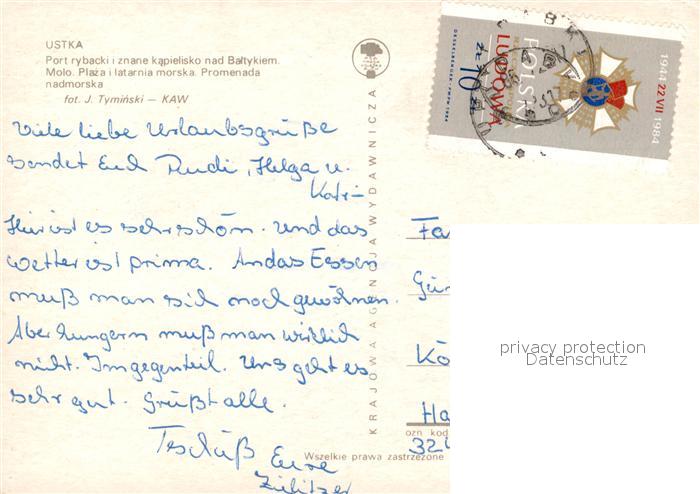 USTKA
Port rybacki i znane kąpielisko nad Bałtykiem.
Molo. Plaża i latarnia morska. Promenada
nadmorska
fot. J. Tymiński — KAW
Viele liebe Urlaubsgrüße
sendet Euch Rudi, Helga u.
Katrin
Hier ist es sehr schön. Und das
Wetter ist prima. An das Essen
muß man sich noch gewöhnen.
Aber hungern muß man wirklich
nicht. Im gegenteil. Uns geht es
sehr gut. Grüßt alle.
Tschüß Eure
KRAJOWA AGENCJA WYDAWNICZA
Wszelkie prawa zastrzeżone
ozn kod
Fa
Gün
Kö
Ha
32
1944 22 VII 1984
POLSKA
LUDOWA
10 ZŁ
privacy protection
Datenschutz